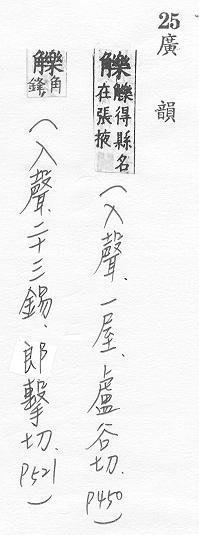 25 廣韻
觻 觻得縣名在張掖 (入聲、一屋、盧谷切、P450)
觻 角鋒 (入聲、二十三錫、郎擊切、P521)